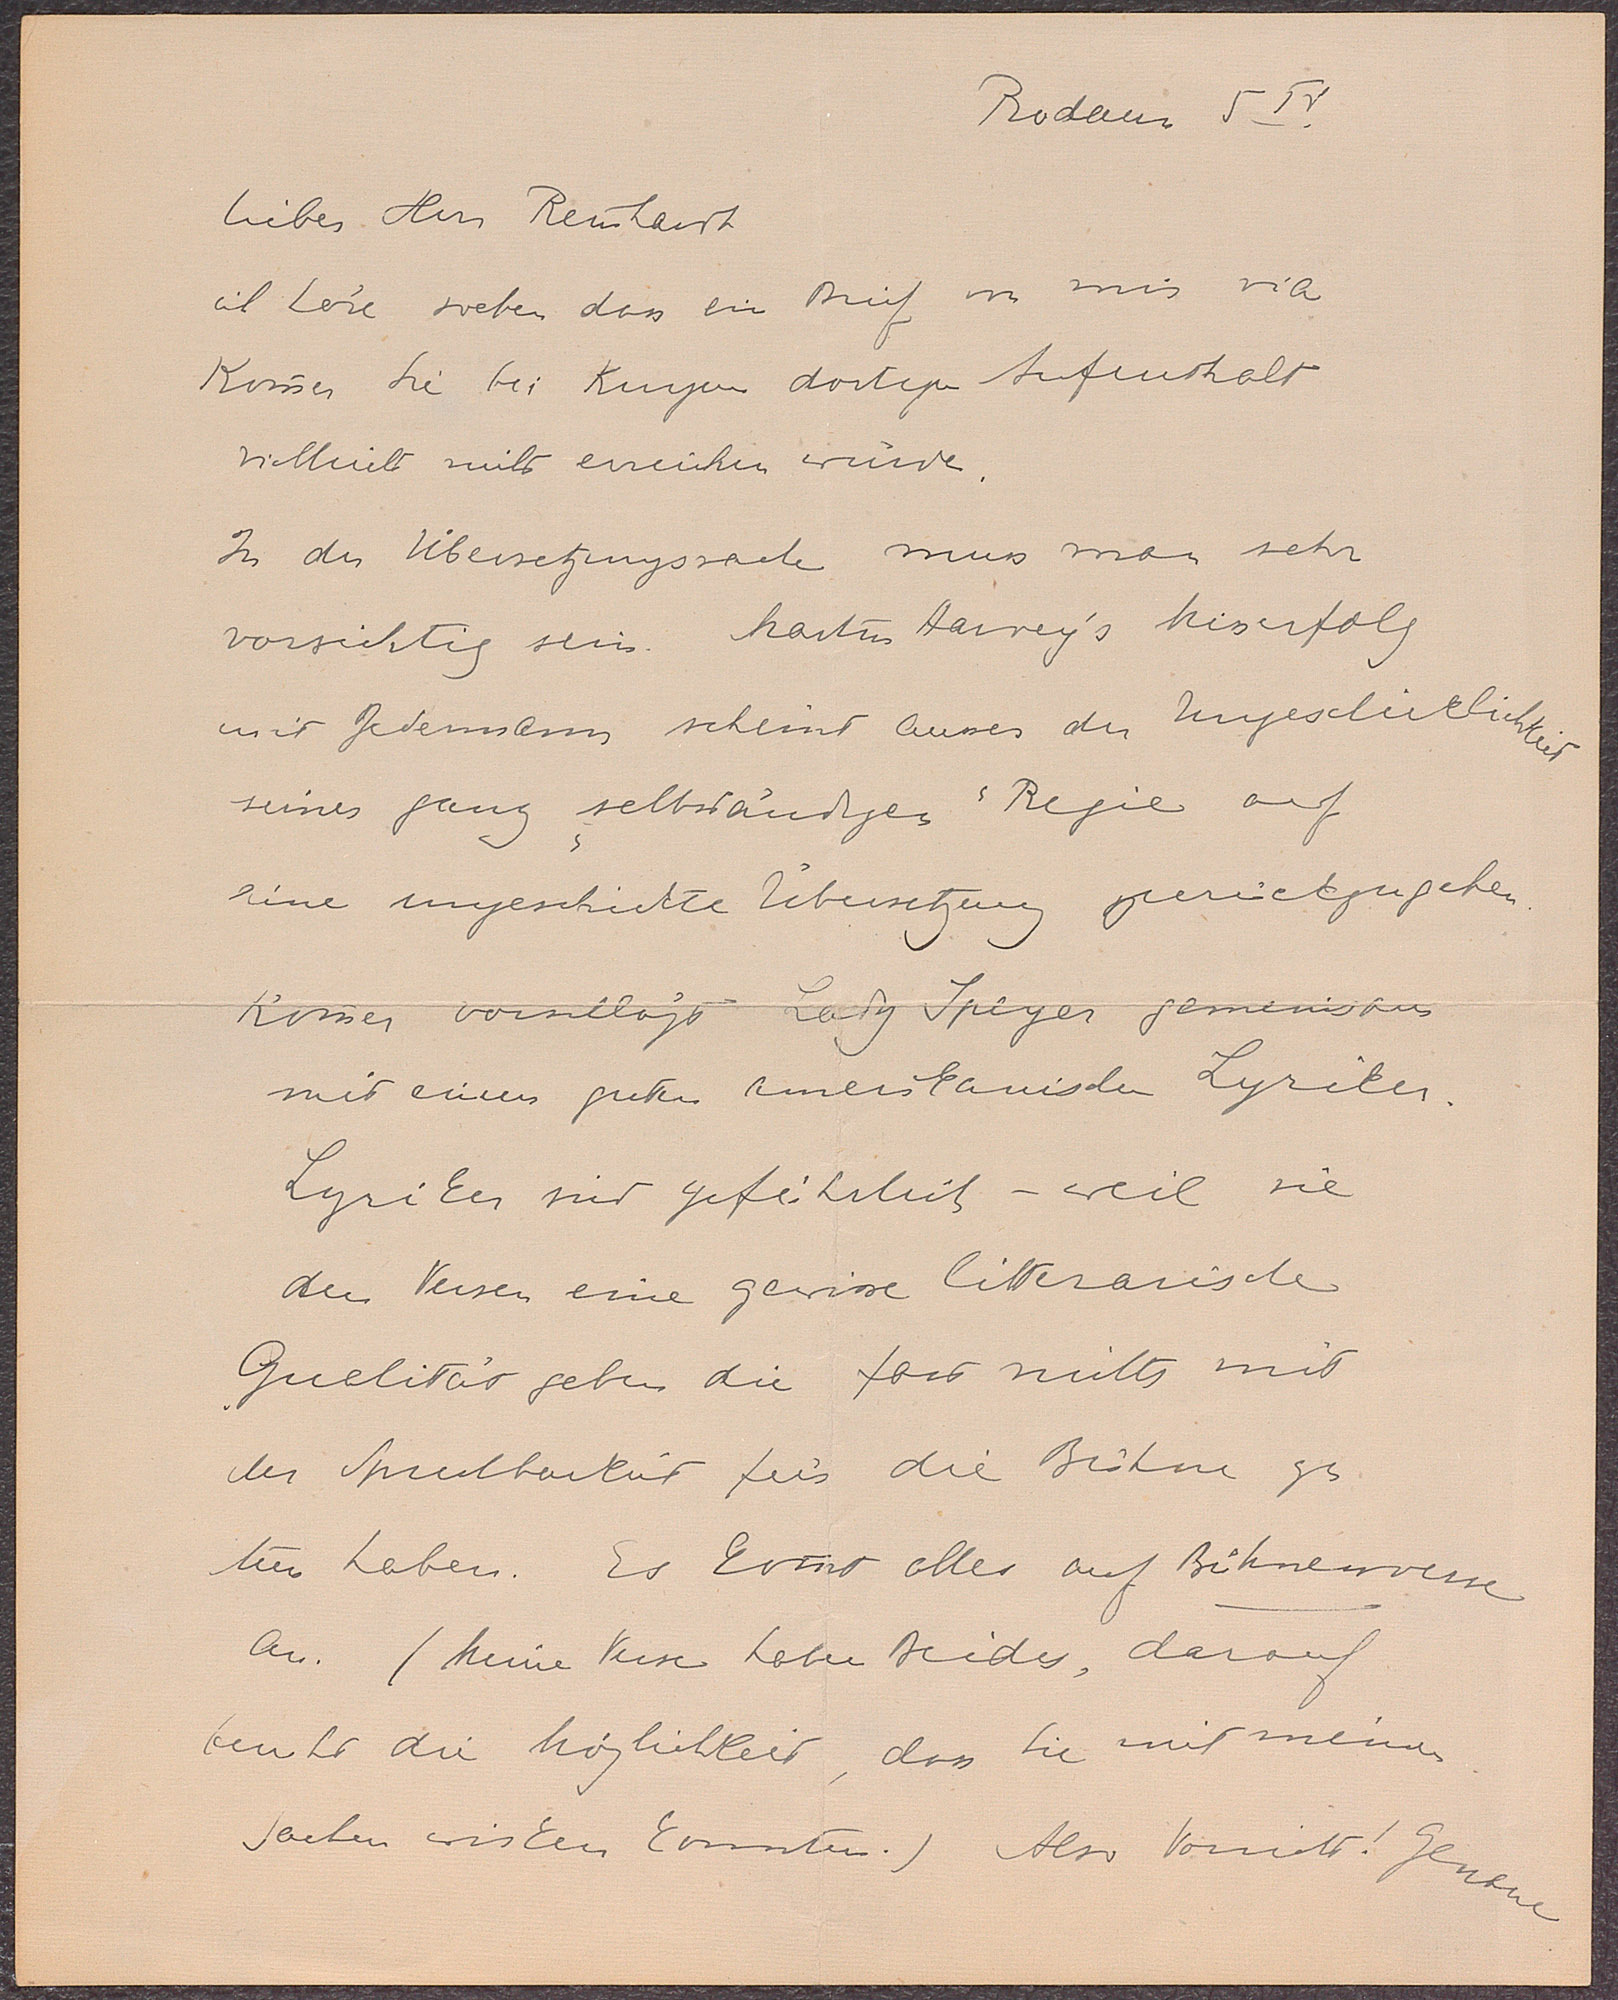 Rodaun 5 IV.
Lieber Herr Reinhardt
ich höre soeben dass ein Brief von mir via
Kom̄er Sie bei kurzem dortigen Aufenthalt
vielleicht nicht erreichen würde.
In der Übersetzungssache muss man sehr
vorsichtig sein. Martin Harvey's Misserfolg
mit Jedermann scheint ausser der Ungeschicklichkeit
seiner ganz „selbständigen“ Regie auf
eine ungeschickte Übersetzung zurückzugehen.
Kom̄er vorschlägt Lady Speyer gemeinsam
mit einem guten amerikanischen Lyriker.
Lyriker sind gefährlich – weil sie
den Versen eine gewisse litterarische
Qualität geben die fast nichts mit
der Sprechbarkeit für die Bühne zu
tun haben. Es kom̄t alles auf Bühnenverse
an. (Meine Verse haben Beides, darauf
beruht die Möglichkeit, dass Sie mit meinen
Sachen wirken konnten.) Also Vorsicht! Genaue